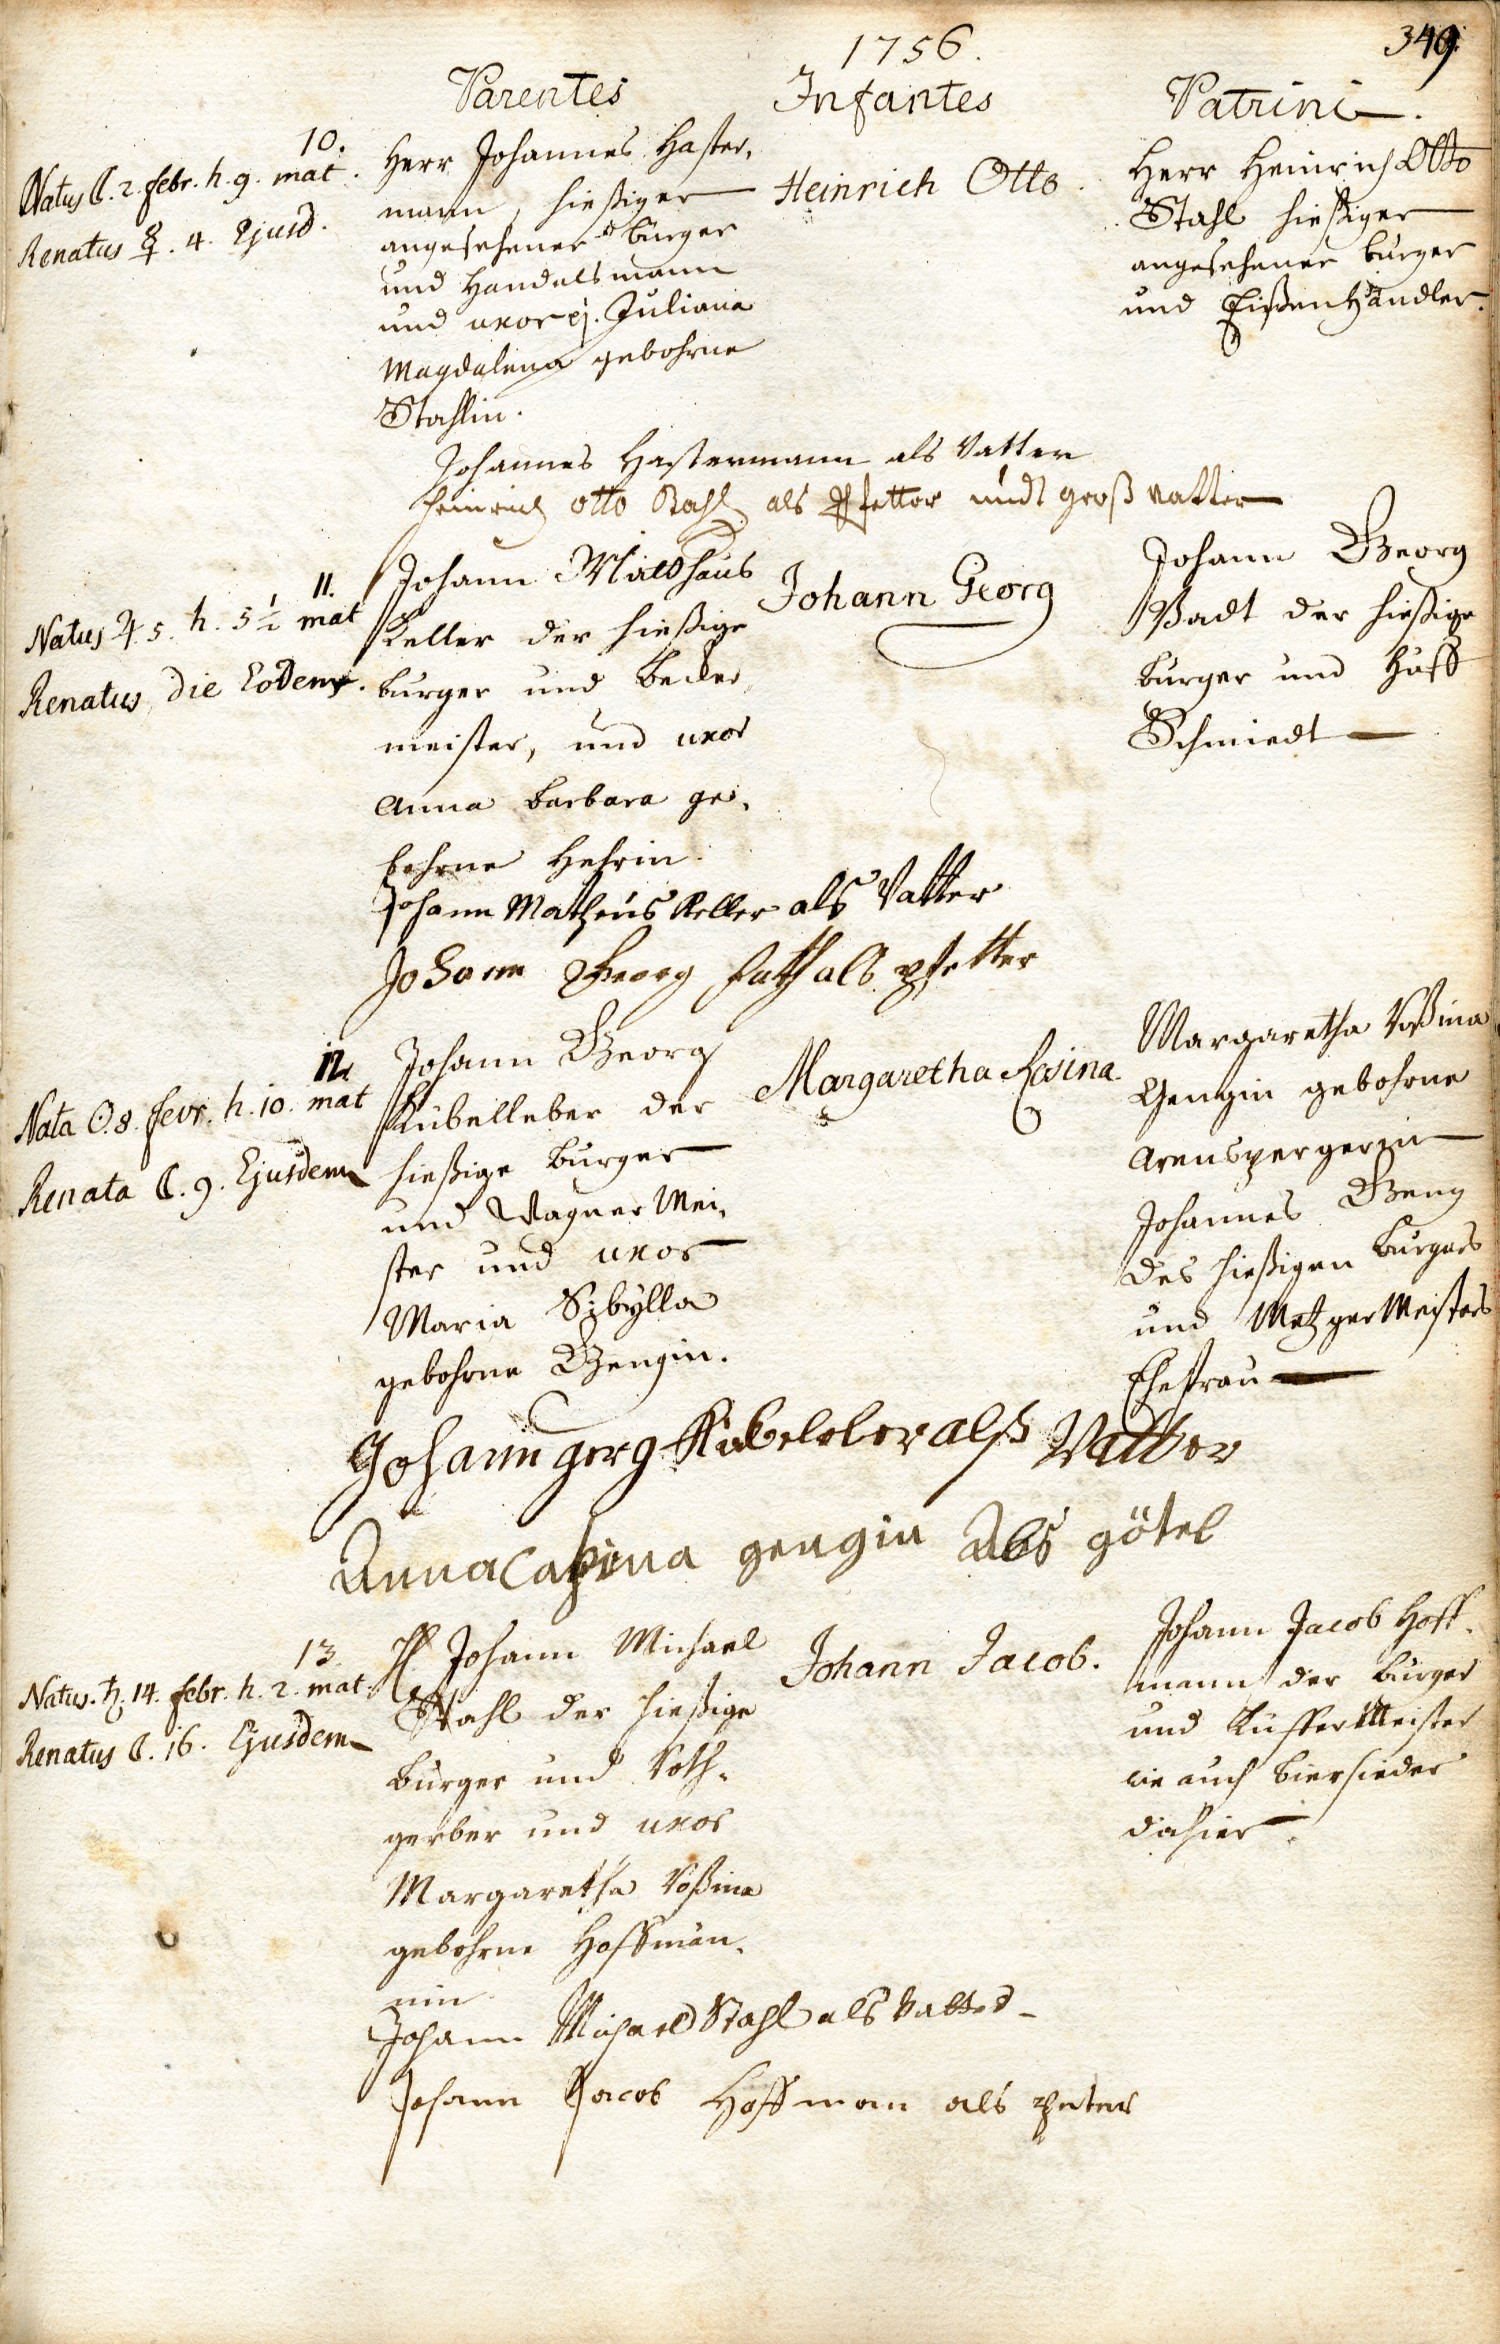 1756.
349
Parentes
Infantes
Patrini.
10.
Natus ☾. 2. febr. h. 9. mat.
Renatus ☿. 4. Ejusd.
Herr Johannes Haster,
mann, hießiger
angesehener bürger
und Handelsmann
und uxor ej. Juliana
Magdalena gebohrne
Stahlin.
Heinrich Otto.
Herr Heinrich Otto
Stahl hießiger
angesehener bürger
und Eißenhändler.
Johannes Hastermann als Vatter
Heinrich Otto Stahl als Pfetter undt groß vatter
11.
Natus ♃ 5. h. 5 1/2 mat
Renatus die Eodem.
Johann Matthäus
Keller der hießige
burger und Becker,
meister, und uxor
Anna Barbara ge,
bohrne Hehrin.
Johann Georg
Johann Georg
der hießige
burger und Huff
Schmiedt
Johann Matheus Keller als Vatter
Johann Georg als Pfetter
12.
Nata ☉. 8. febr. h. 10. mat
Renata ☾. 9. Ejusdem
Johann Georg
Kübelleber der
hießige burger
und Wagner Mei,
ster und uxor
Maria Sibylla
gebohrne Gengin.
Margaretha Rosina
Margaretha Roßina
Gengin gebohrne
Arenspergerin
Johannes Geng
des hießigen burgers
und Metzger Meisters
Ehefrau
Johann gerg Kübeleber alß Vatter
Anna gengin als götel
13.
Natus. ♄. 14. febr. h. 2. mat.
Renatus ☾. 16. Ejusdem
H. Johann Michael
Stahl der hießige
bürger und Roth,
gerber und uxor
Margaretha Roßina
gebohrne Hoffmän,
nin
Johann Jacob.
Johann Jacob Hoff,
mann der bürger
und Küffer Meister
wie auch biersieder
dahier.
Johann Michael Stahl als Vatter
Johann Jacob Hoffman als